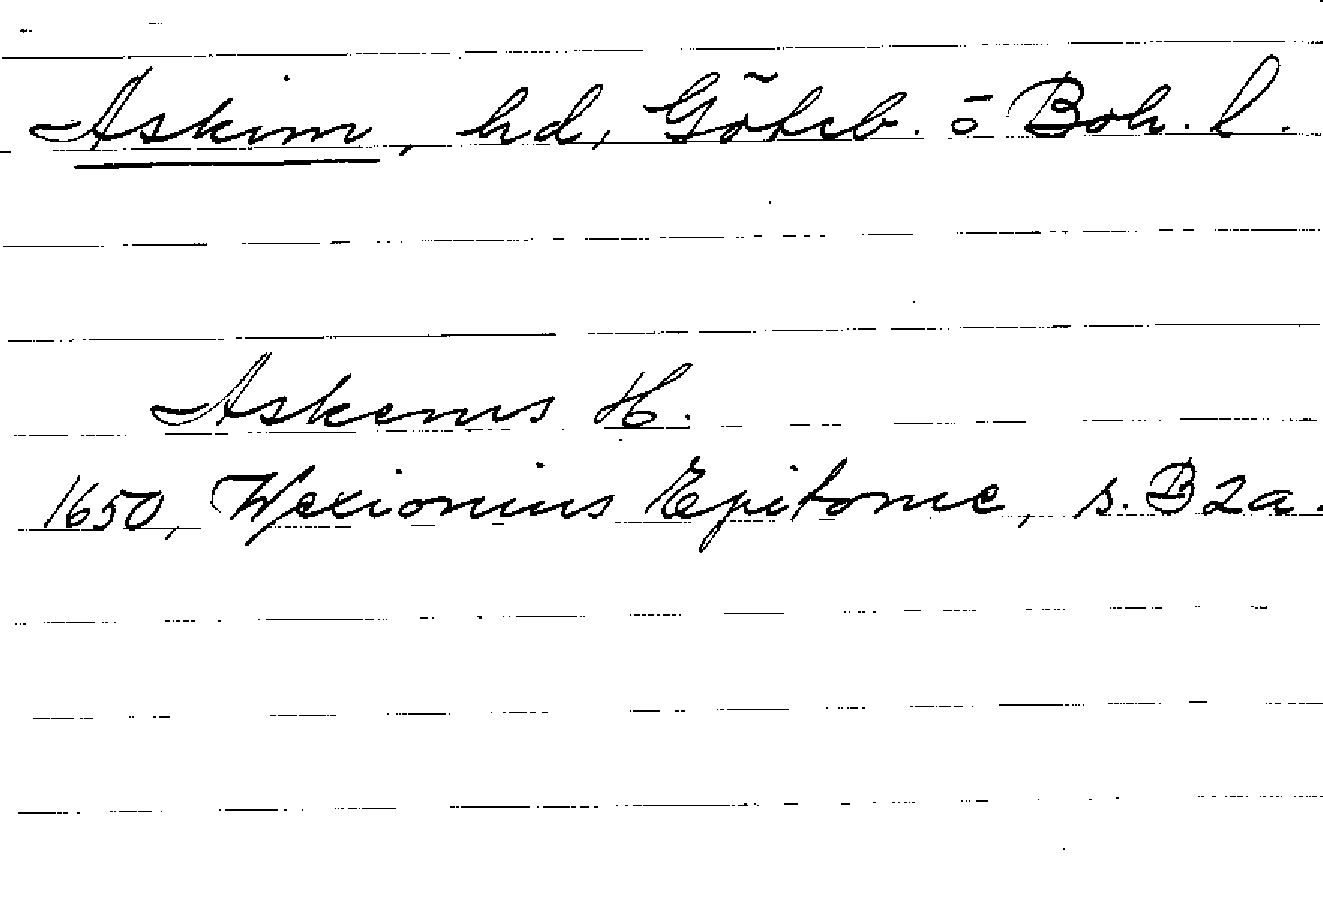 Askim, hd, Göteb. o Boh. l.
Askems H.
1650, Wexionius Epitome, s. B2a.